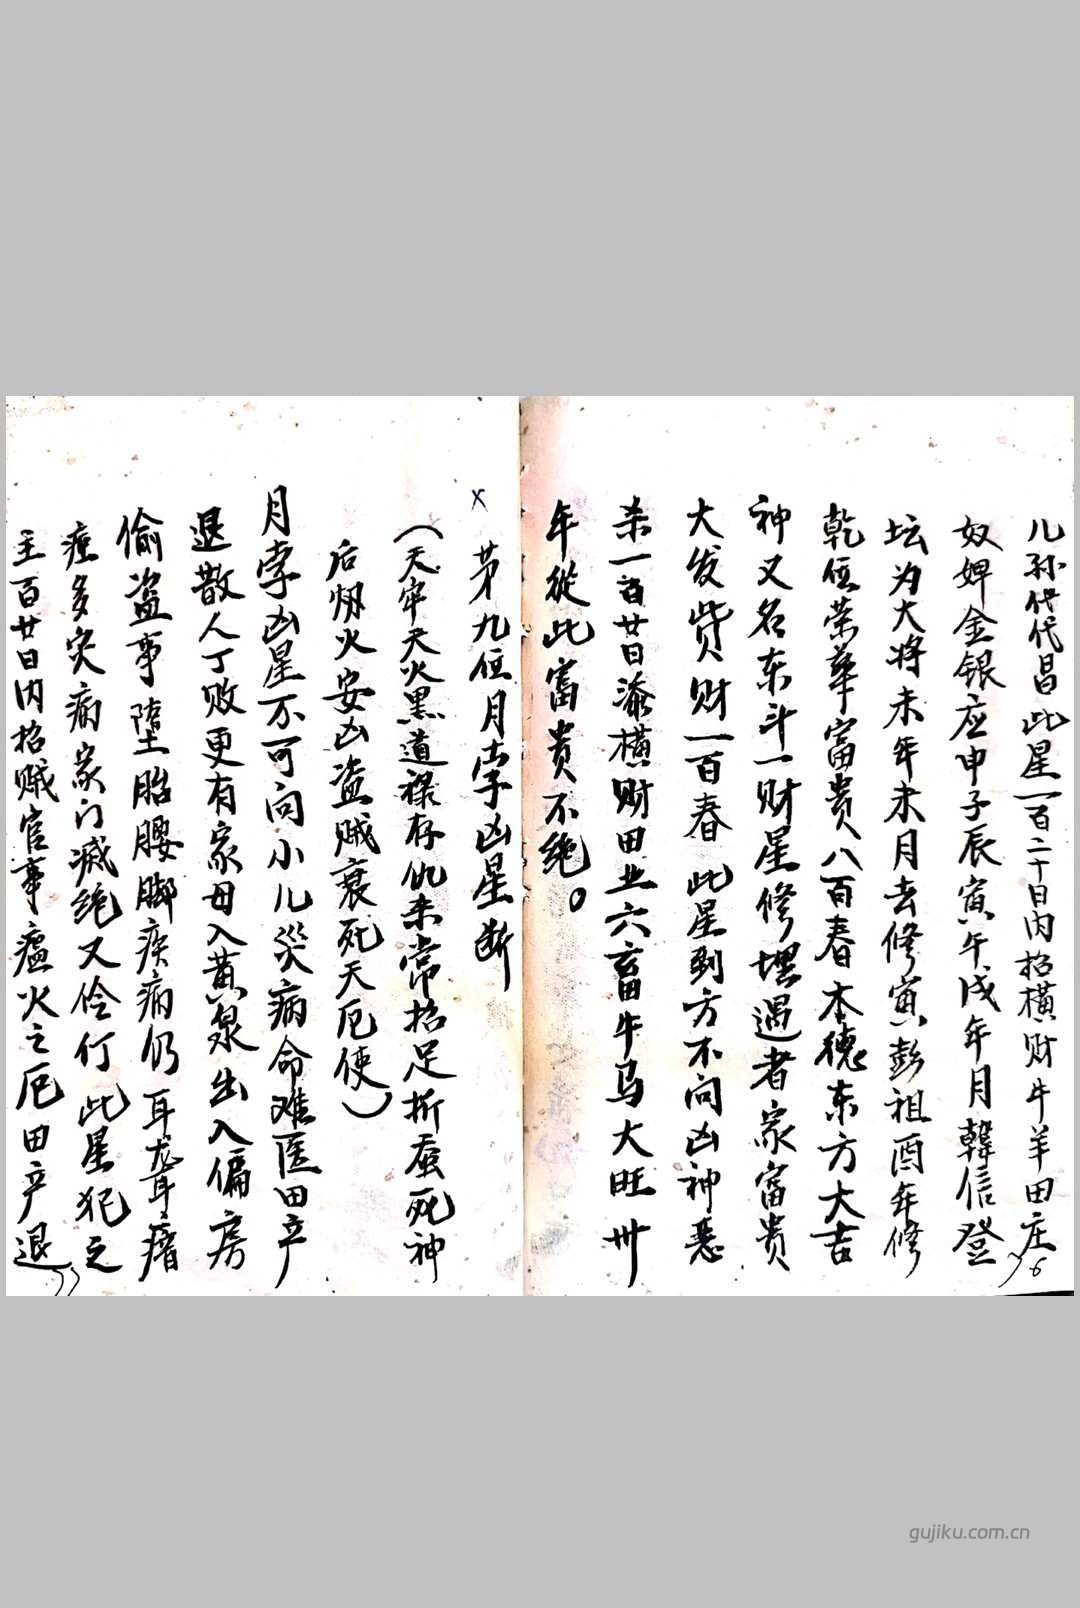 儿孙代代昌此星一百二十日内招横财牛羊田庄
奴婢金银应申子辰寅午戌年月韓信登
坛为大将未年未月去修寅彭祖酉年修
乾位荣華富贵八百春本德东方大吉
神又名东斗一财星修埋遇者家富贵
大发赀财一百春此星到方不问凶神恶
杀一百廿日添横财田业六畜牛马大旺卅
年從此富贵不绝。
6
x
苐九位月孛凶星断
(天牢天火黑道禄存仇未常招足折蚕死神
后火安凶盗贼衰死天厄使)
月孛凶星不可向小儿災病命难医田产
退散人丁败更有家母入黄泉出入偏房
偷盗事堕胎腰脚疾病仍耳聋瘖
痖多灾病家门滅绝又伶仃此星犯之
主百廿日内招贼官事瘟火之厄田产退
gujiku.com.cn